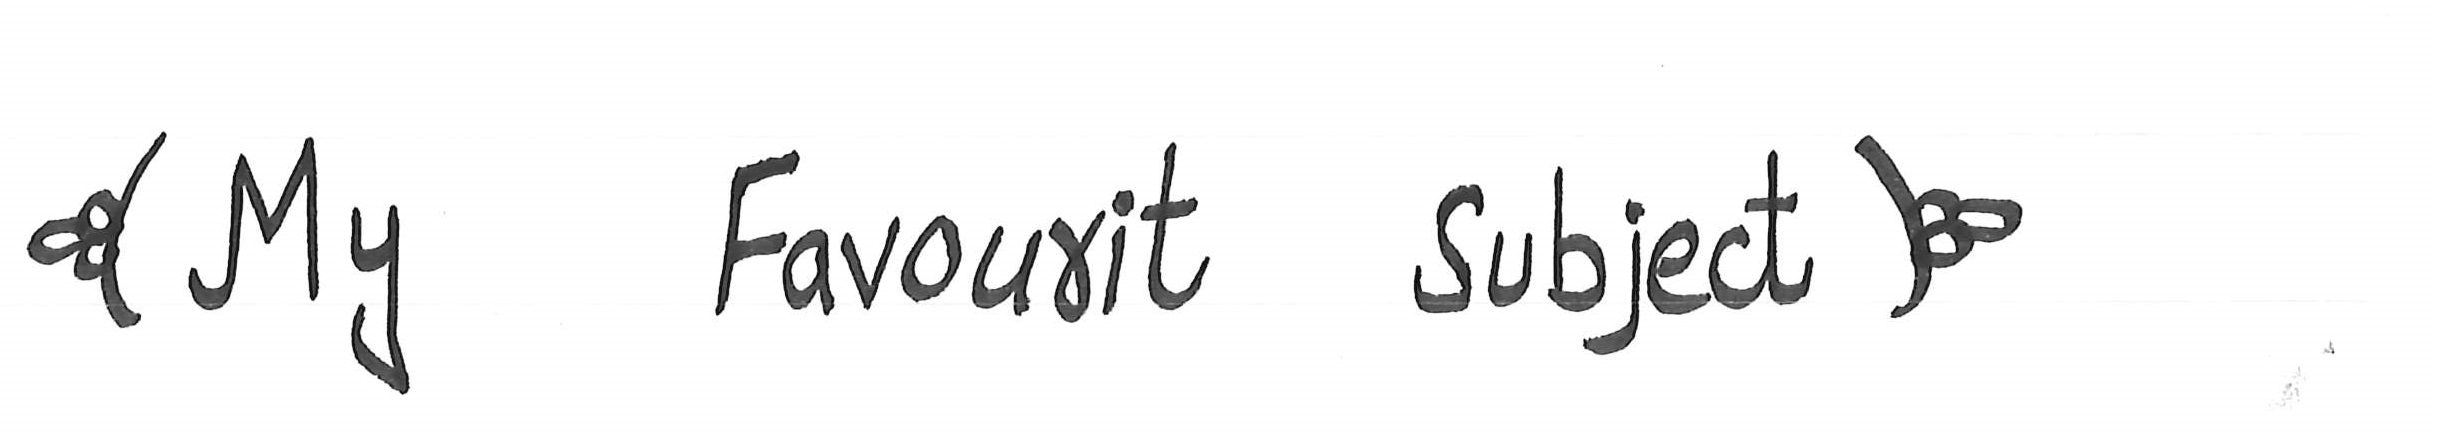 My Favourit Subject